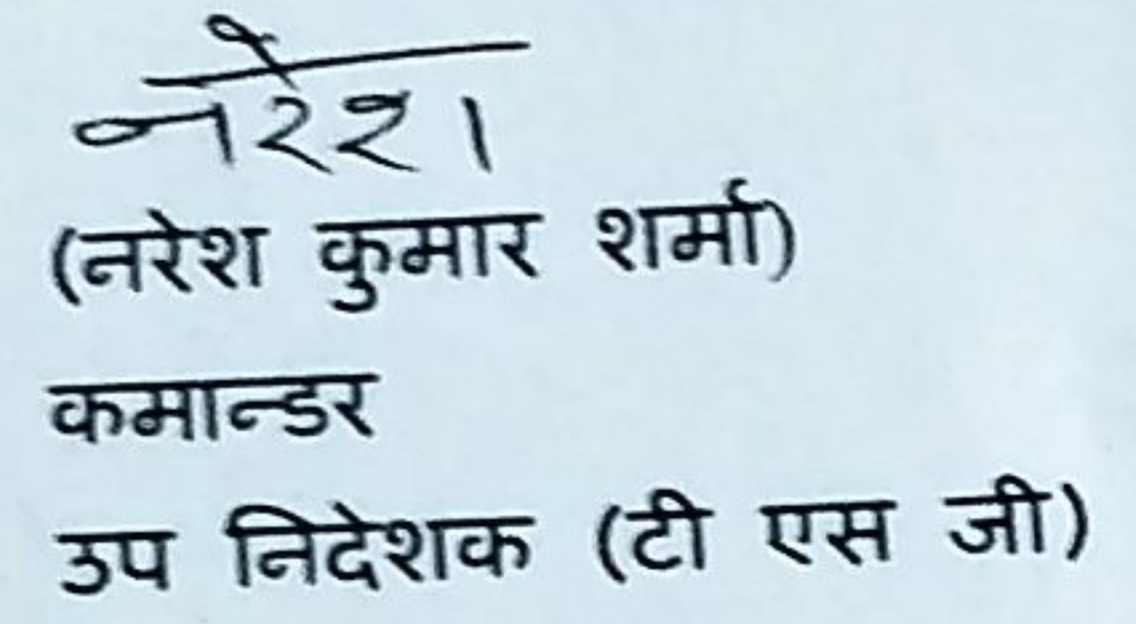 नरेश
(नरेश कुमार शर्मा)
कमान्डर
उप निदेशक (टी एस जी)